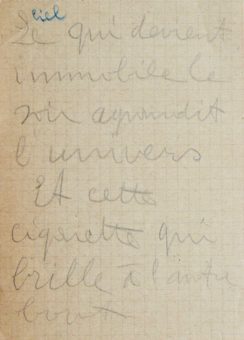 ciel
Le qui devient
immobile le
soir agrandit
l'univers
Et cette
cigarette qui
brille à l'autre
bout